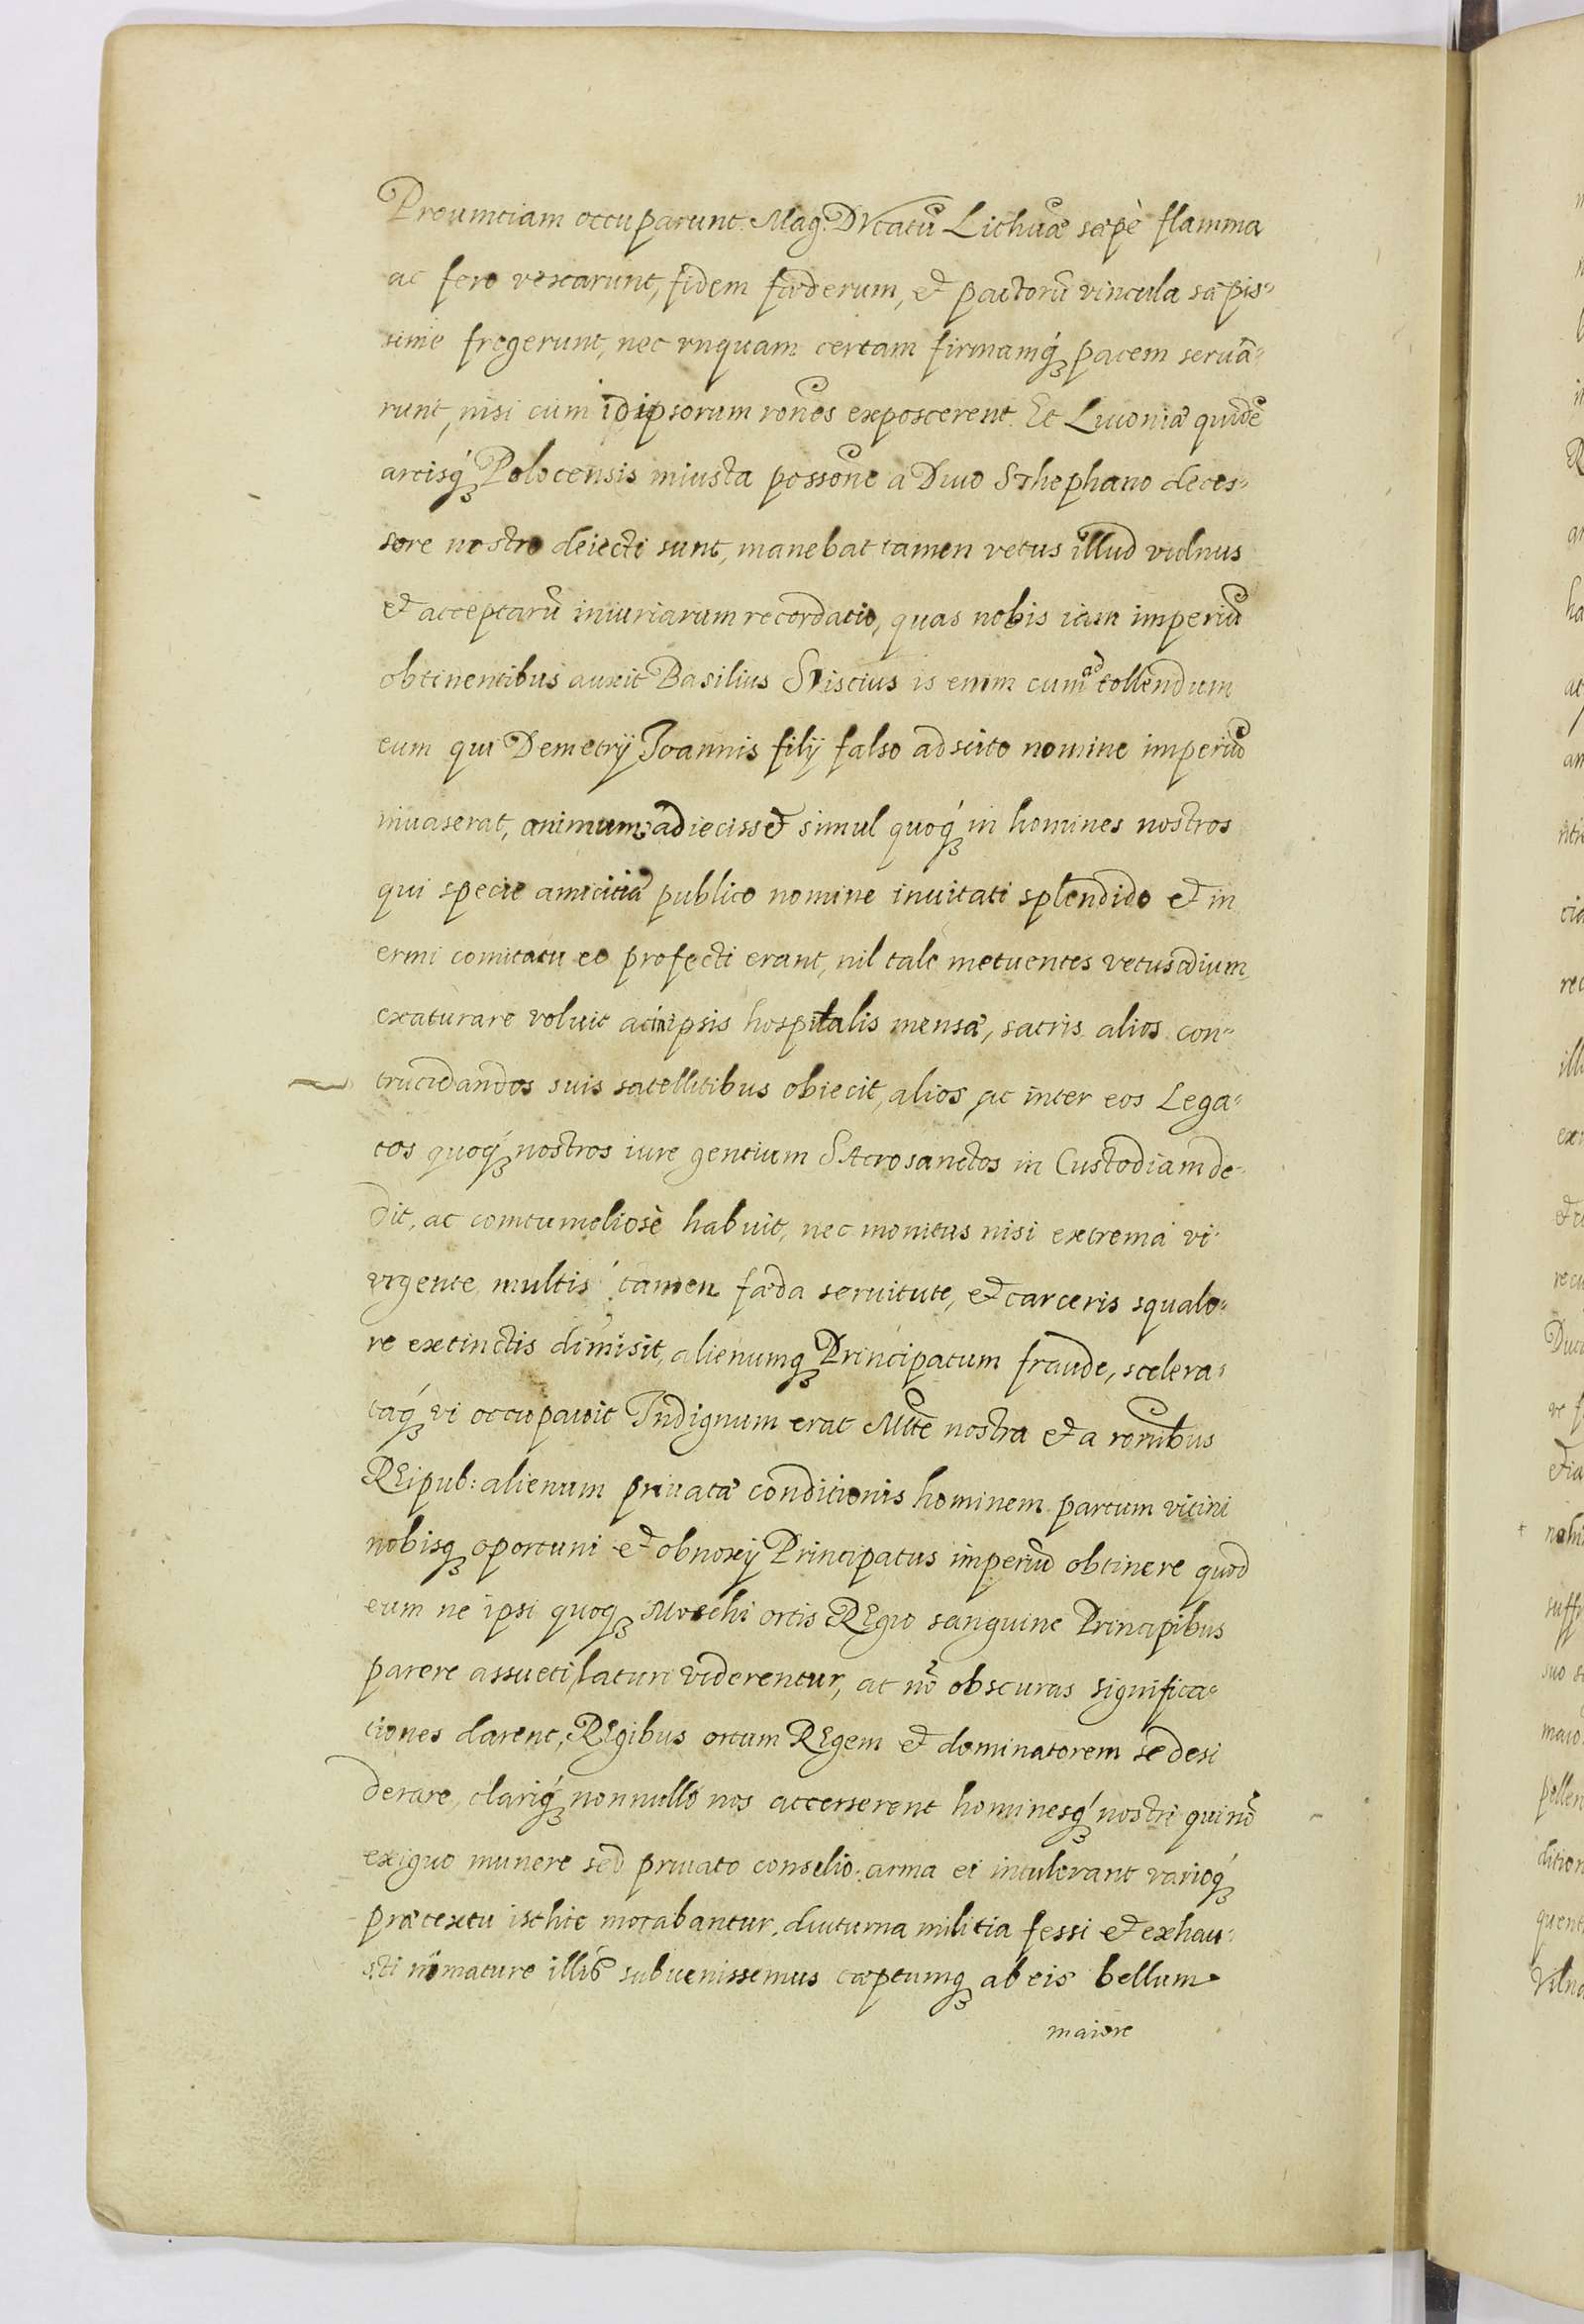 Prouintiam occuparunt. Mag: Dvcatũ Lithuæ sæpè flamma
ac fero vexarunt, fidem fæderum, et pactorũ vincula sæpis-
sime fregerunt, nec vnquam certam firmamq́ȝ pacem seruâ-
runt, nisi cùm id ipsorum rones exposcerent. Et Liuoniæ quidẽ
arcisq́ȝ Polocensis iniusta possone a Diuo Sthephano deces-
sore nostro deiecti sunt, manebat tamen vetus illud vulnus
et acceptarũ iniuriarum recordatio, quas nobis iam imperiũ
obtinentibus auxit Basilius Sviscius is enim cum ad tollendum
eum qui Demetrij Joannis filij falso adscito nomine imperiũ
inuaserat, animum adiecisset simul quoq́ȝ in homines nostros
qui specie amicitiæ publico nomine inuitati splendido et in
ermi comitatu eo profecti erant, nil tale metuentes vetus odium
exaturare voluit ac in ipsis hospitalis mensæ, sacris alios con-
trucidandos suis satellitibus obiecit, alios, ac inter eos Lega-
tos quoq́ȝ nostros iure gentium SAcrosanctos in Custodiam de-
dit, ac comtumeliosè habuit, nec monitus nisi extrema vi
vrgente multis tamen fæda seruitute, et carceris squalo-
re extinctis dimisit, alienumqȝ Principatum fraude, scelera-
táq́ȝ vi occupauit Indignum erat Mtte nostra et a ronibus
REipub: alienum priuatæ conditionis hominem partum vicini
nobisqȝ oportuni et obnoxij Principatus imperiũ obtinere quod
eum ne ipsi quoqȝ Moschi ortis REgio sanguine Principibus
parere assueti, laturi viderentur, at nõ obscuras significa-
tiones darent, REgibus ortum REgem et dominatorem se desi
derare, clariq́ȝ nonnulli nos accerserent hominesq́ȝ nostri qui nõ
exiguo munere sed priuato consilio arma ei intulerant varioq́ȝ
prætextu isthic morabantur, diuturna militia fessi et exhau-
sti nì mature illis subuenissemus cæptumqȝ ab eis bellum
maiore